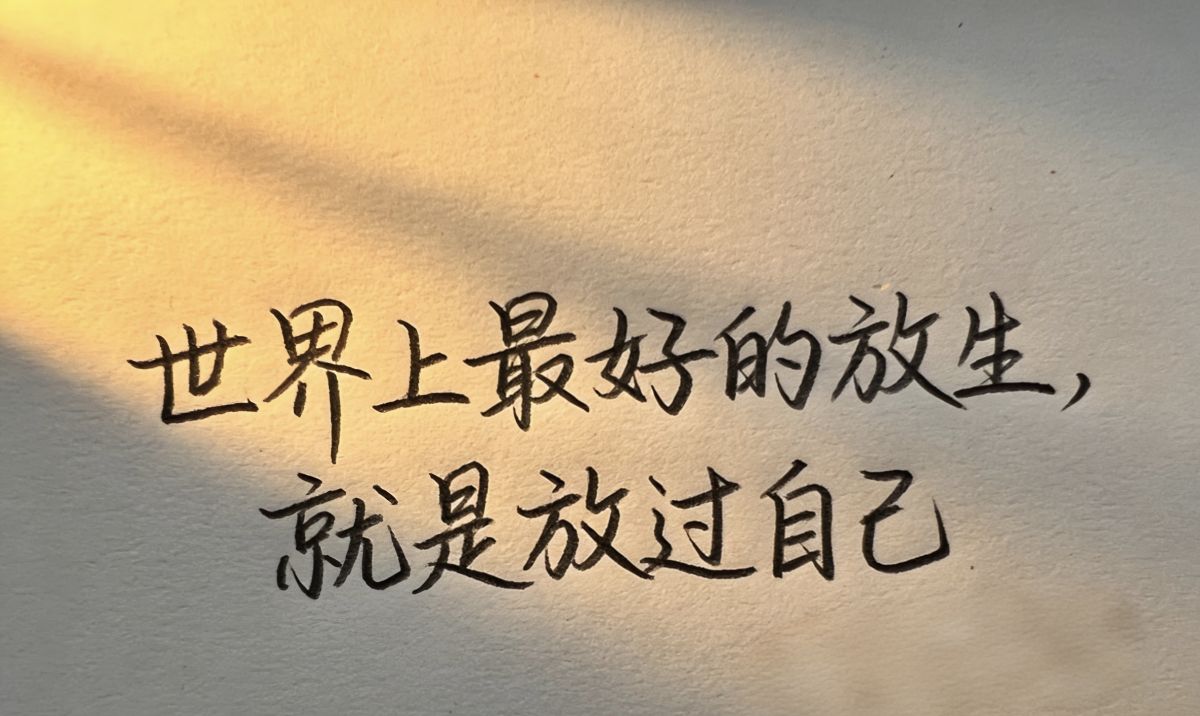 世界上最好的放生,
就是放过自己